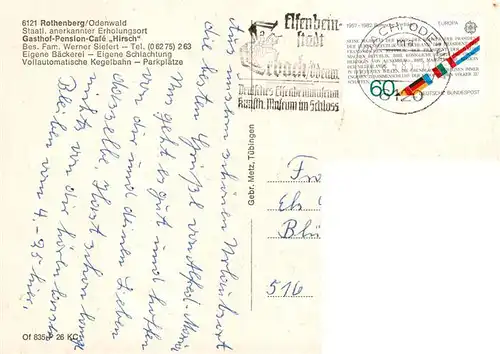 6121 Rothenberg/Odenwald
Staatl. anerkannter Erholungsort
Gasthof-Pension-Café „Hirsch"
Bes. Fam. Werner Siefert – Tel. (0 62 75) 263
Eigene Bäckerei – Eigene Schlachtung
Vollautomatische Kegelbahn – Parkplätze
Elfenbein-
stadt
Erbach/Odenw.
Deutsches Elfenbeinmuseum
Kunsth. Museum im Schloss
1957-1982
EUROPA
60
DEUTSCHE BUNDESPOST
6120
Aus unserem schönen Urlaubsort
die besten Grüße von Alfred
Uns geht es gut und hoffen
von dir und deinen Lieben
dasselbe. Hast schon lange
nichts von dir hören lassen
Bleiben vom 4. – 25. hier,
Gebr. Metz, Tübingen
Fr
Els
Blü
516
Of 835 26 KC